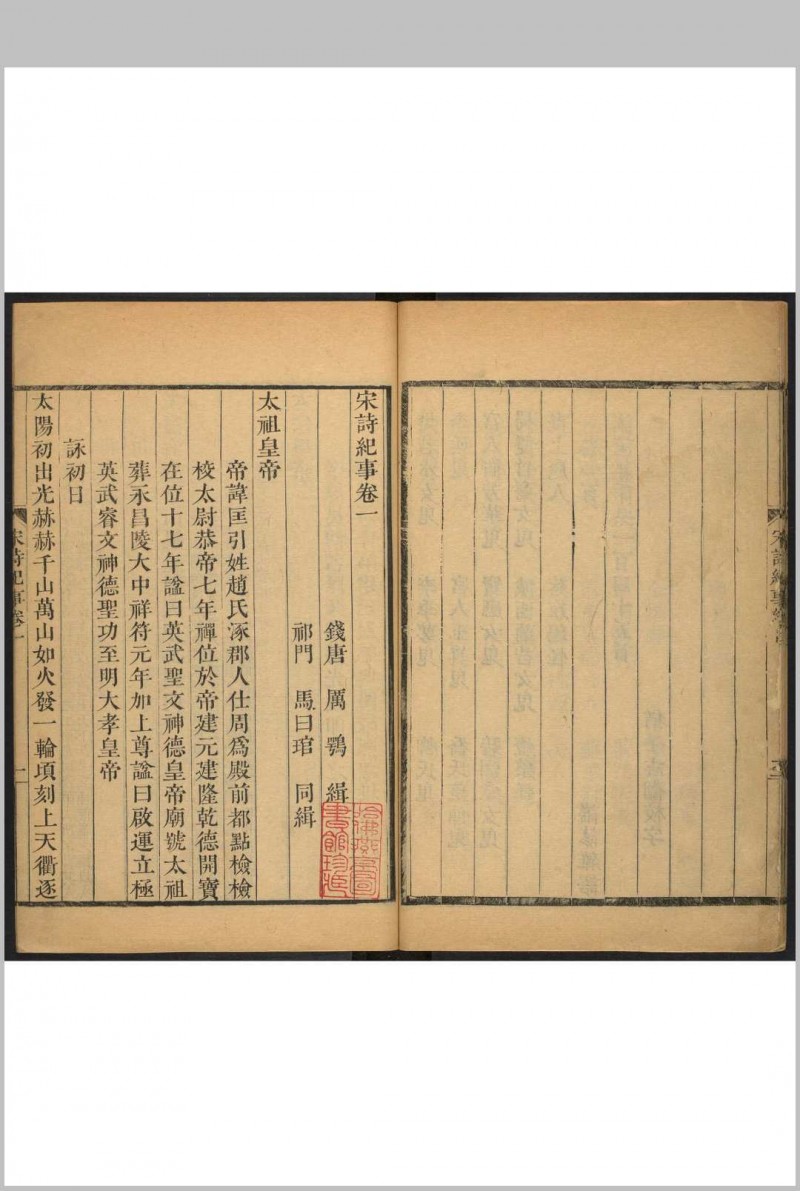 宋詩紀事卷一
錢唐 厲鶚 緝
祁門 馬曰琯 同緝
太祖皇帝
帝諱匡引姓趙氏涿郡人仕周爲殿前都點檢檢
校太尉恭帝七年禪位於帝建元建隆乾德開寶
在位十七年謚曰英武聖文神德皇帝廟號太祖
葬永昌陵大中祥符元年加上尊謚曰啟運立極
英武睿文神德聖功至明大孝皇帝
詠初日
太陽初出光赫赫千山萬山如火發一輪頃刻上天衢逐
宋詩紀事卷一
一
哈佛燕京圖書館珍藏